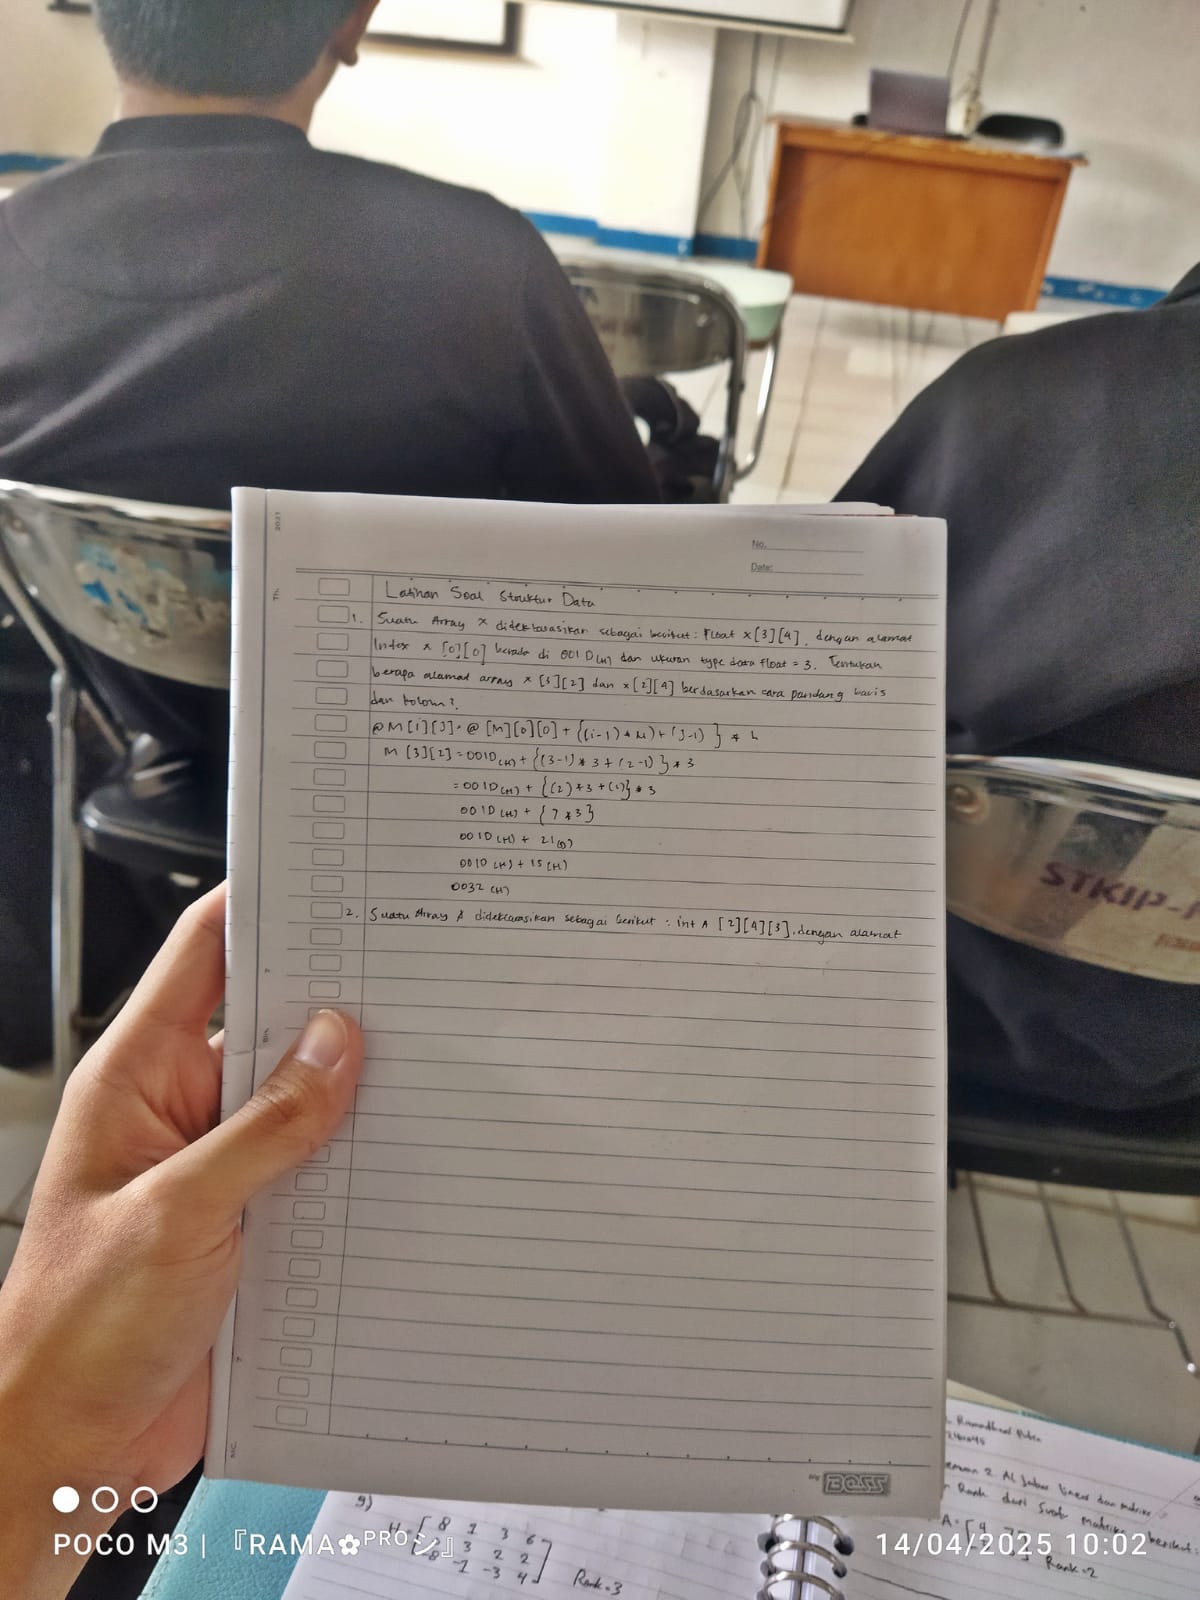 No.
Date:
Th. 2021
Latihan Soal Struktur Data
1. Suatu Array x dideklarasikan sebagai berikut: Float x[3][4], dengan alamat
Index x [0][0] berada di 001D(H) dan ukuran type data float = 3. Tentukan
berapa alamat array x [3][2] dan x[2][4] berdasarkan cara pandang baris
dan kolom?
@M[i][j] = @ [M][0][0] + {(i-1) * M) + (j-1) } * L
M [3][2] = 001D(H) + {(3-1) * 3 + (2-1) } * 3
= 001D(H) + {(2) * 3 + (1)} * 3
001D(H) + { 7 * 3}
001D(H) + 21(D)
001D(H) + 15(H)
0032 (H)
2. Suatu Array A dideklarasikan sebagai berikut : int A [2][4][3], dengan alamat
BOSS
STKIP-
Ramadhani Putra
2. Aljabar linear dan matriks
Rank dari suatu matriks berikut:
Rank=2
9)
8 1 3 6
3 2 2
-1 -3 4
Rank=3
POCO M3 | 『RAMA✿ᴾᴿᴼシ』
14/04/2025 10:02